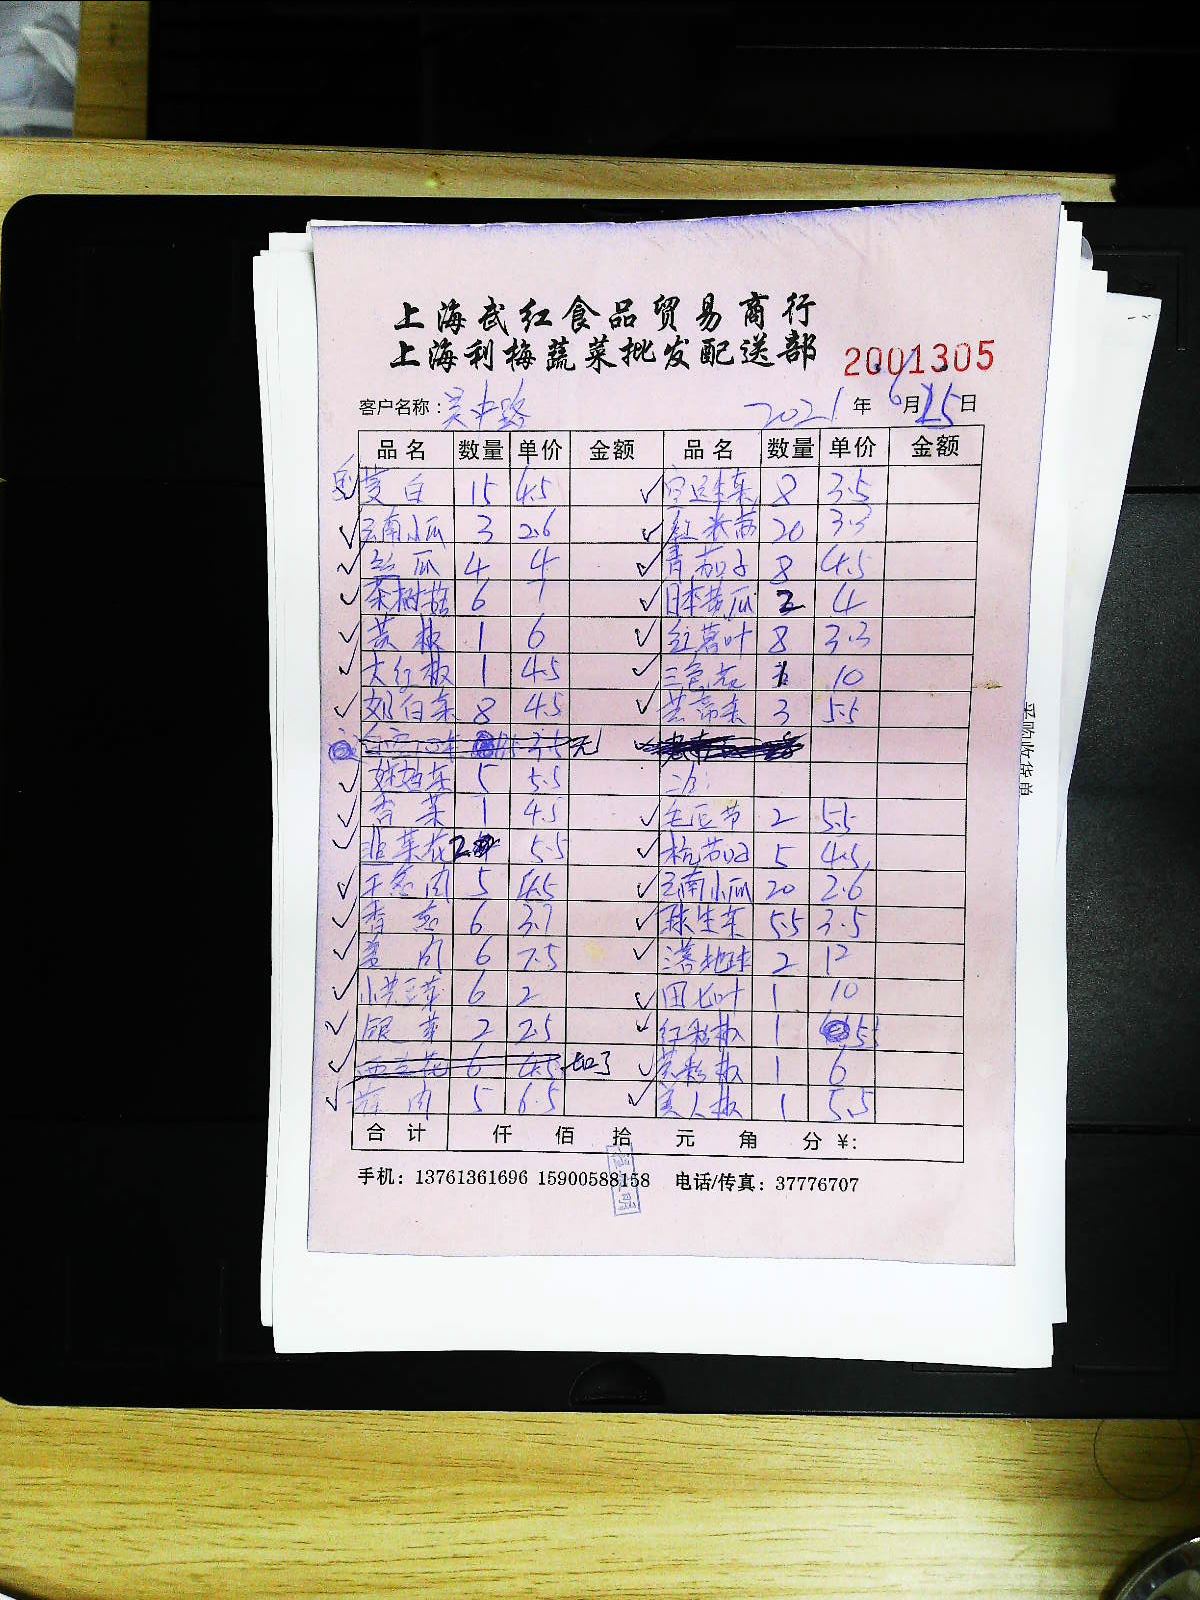 上海武红食品贸易商行
上海利梅蔬菜批发配送部
2001305
客户名称：吴中路 2021年6月15日
品名 数量 单价 金额 品名 数量 单价 金额
茭白 15 4.5 8 3.5
云南小瓜 3 2.6 20 3.3
丝瓜 4 4 青茄子 8 4.5
茶树菇 6 7 日本黄瓜 2 4
黄椒 1 6 红薯叶 8 3.3
大红椒 1 4.5 三色苋 10
8 4.5 3 5.5
3.5 无
娃娃菜 5 5.5
香菜 1 4.5 毛豆节 2 5.5
韭菜花 2 5.5 杭茄 5 4.5
干葱肉 5 4.5 云南小瓜 20 2.6
香葱 6 3.7 球生菜 5.5 3.5
姜肉 6 7.5 2 12
6 2 田七叶 1 10
银芽 2 2.5 红彩椒 1 5.5
西兰花 6 4.5 黄彩椒 1 6
蒜肉 5 6.5 美人椒 1 5.5
合计 仟 佰 拾 元 角 分 ¥：
手机：13761361696 15900588158 电话/传真：37776707
采购收货单